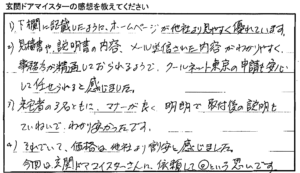 玄関ドアマイスターの感想を教えてください
1) 下欄に記載したように、ホームページが他社より見やすく優れています。
2) 見積書や、説明書の内容、メール送信された内容がわかりやすく、
事務方が精通しておられるようで、クールネット東京の申請も安心
して任せられると感じました。
3) 来宅者の2名ともに、マナーが良く 明朗で 取付後の説明も
ていねいで、わかり安かったです。
4) それでいて、価格は他社より割安と感じました。
今回は玄関ドアマイスターさんに依頼して◎という思いです。